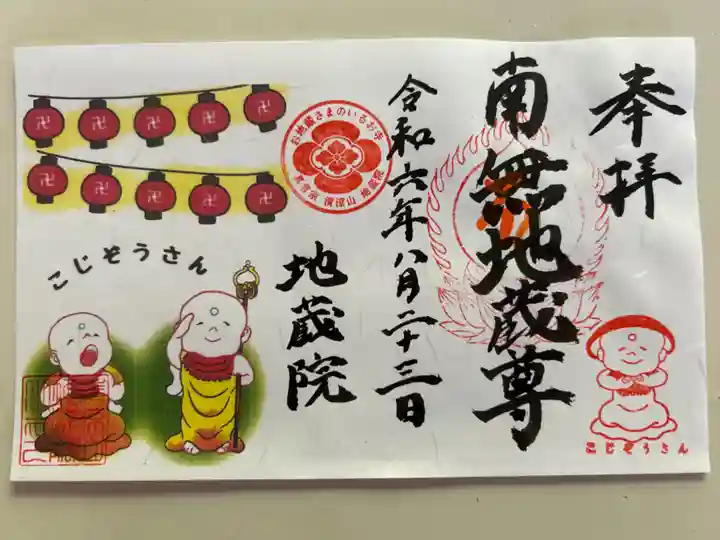 奉拝
南無地蔵尊
令和六年八月二十三日
地蔵院
お地蔵さまのいるお寺
地蔵院
こじぞうさん
こじぞうさん
卍 卍 卍 卍 卍
卍 卍 卍 卍 卍